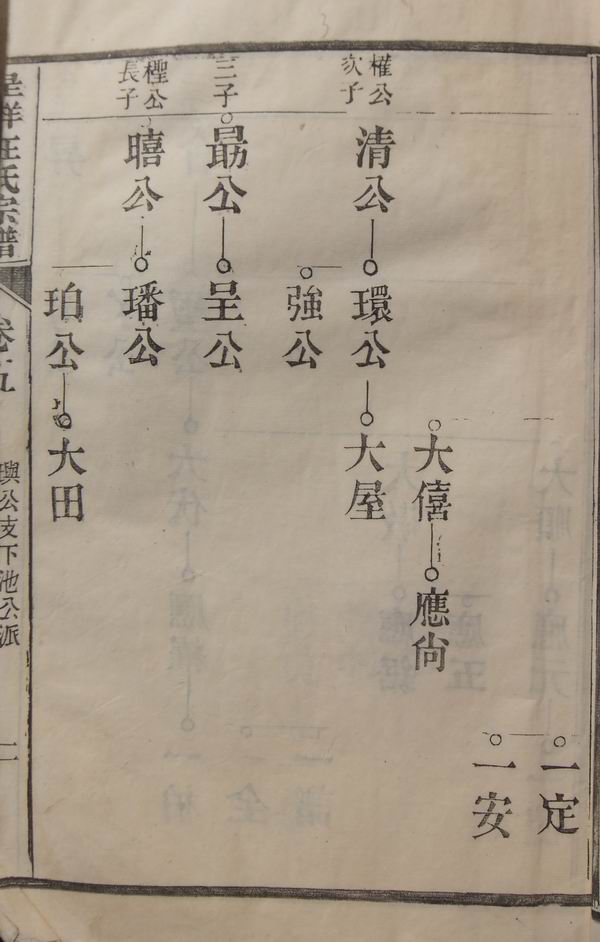 一定
一安
大僖
應尙
權公
次子
清公
環公
大屋
強公
三子
最公
呈公
檉公
長子
暿公
璠公
珀公
大田
汪氏宗譜
卷十五
輿公支下池公派
二